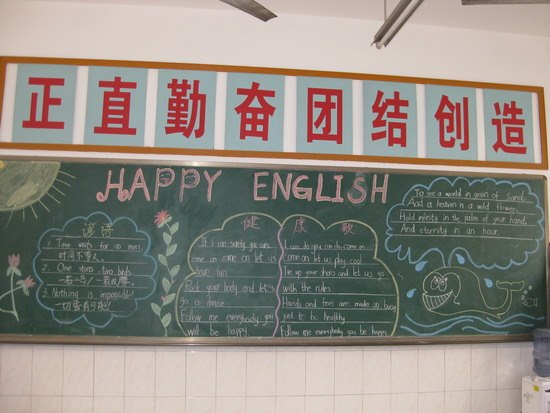 正直勤奋团结创造
HAPPY ENGLISH
谚语
1. Time waits for no man.
时间不等人。
2. One stone two birds
一石二鸟/一箭双雕
3. Nothing is impossible!
一切皆有可能!
健康歌
If I can surely you can
come on come on let us
have fun
Rock your body and let's
go a dance
Follow me everybody you
will be happy
I can do you can do come on
come on let us play cool
Tie up your shoes and let us go
with the rules
Hands and feet are made so busy
just to be healthy
Follow me everybody you be happy
To see a world in grain of sand,
And a heaven in a wild flower,
Hold infinity in the palm of your hand,
And eternity in an hour.